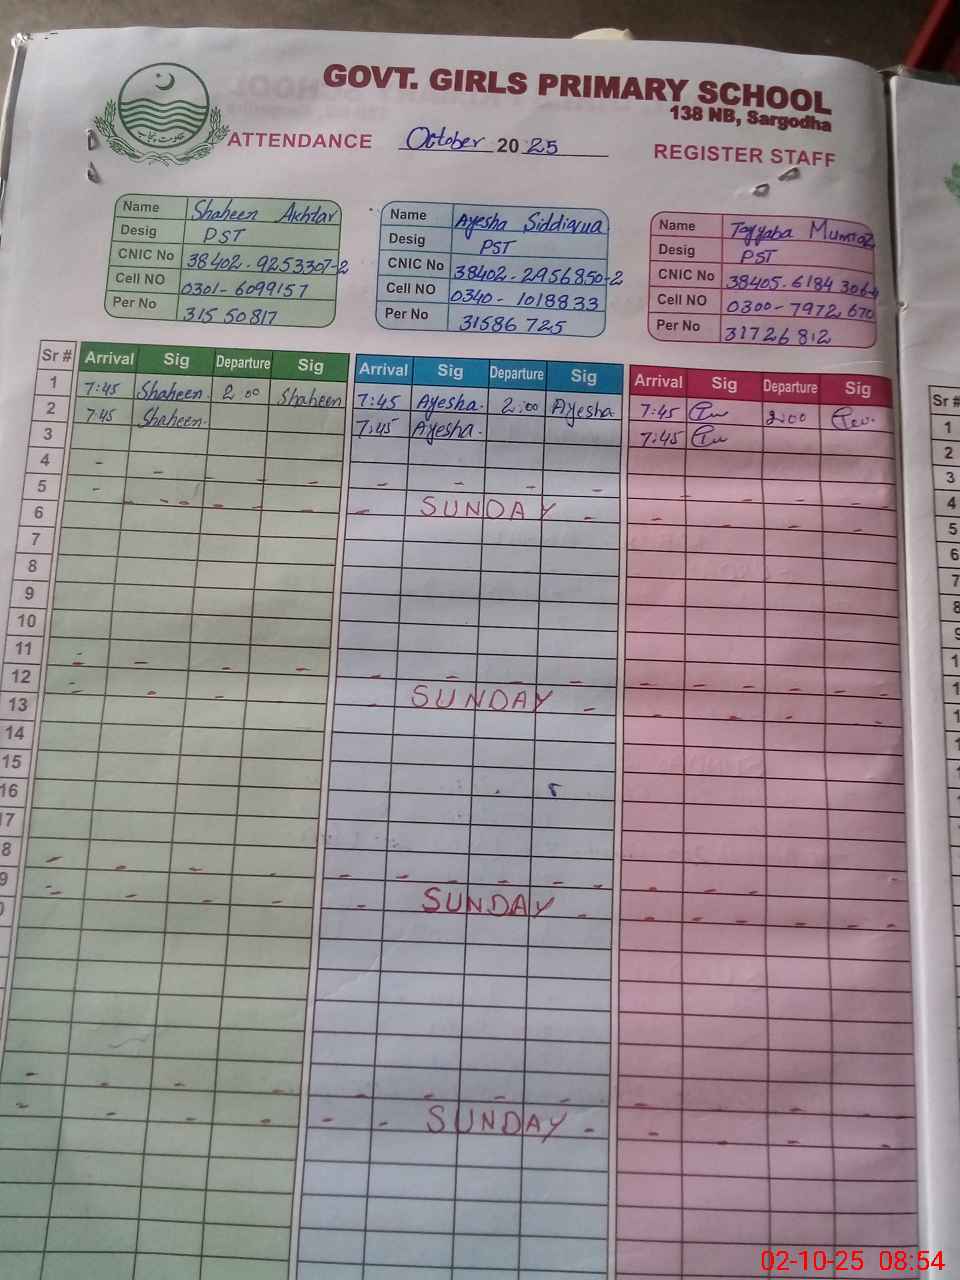 GOVT. GIRLS PRIMARY SCHOOL
138 NB, Sargodha
ATTENDANCE October 2025
REGISTER STAFF
Name Shaheen Akhtar
Desig PST
CNIC No 38402-9253307-2
Cell NO 0301-6099157
Per No 31550817
Name Ayesha Siddiqua
Desig PST
CNIC No 38402-2956850-2
Cell NO 0340-1018833
Per No 31586725
Name Tayyaba Mumtaz
Desig PST
CNIC No 38405-6184306-
Cell NO 0300-7972670
Per No 31726812
Sr # Arrival Sig Departure Sig Arrival Sig Departure Sig Arrival Sig Departure Sig
1 7:45 Shaheen. 2:00 Shaheen 7:45 Ayesha. 2:00 Ayesha. 7:45 2:00
2 7:45 Shaheen. 7:45 Ayesha. 7:45
3
4
5 SUNDAY
6
7
8
9
10
11
12 SUNDAY
13
14
15
16
17
8
9 SUNDAY
SUNDAY
Sr #
1
2
3
4
5
6
7
8
02-10-25 08:54